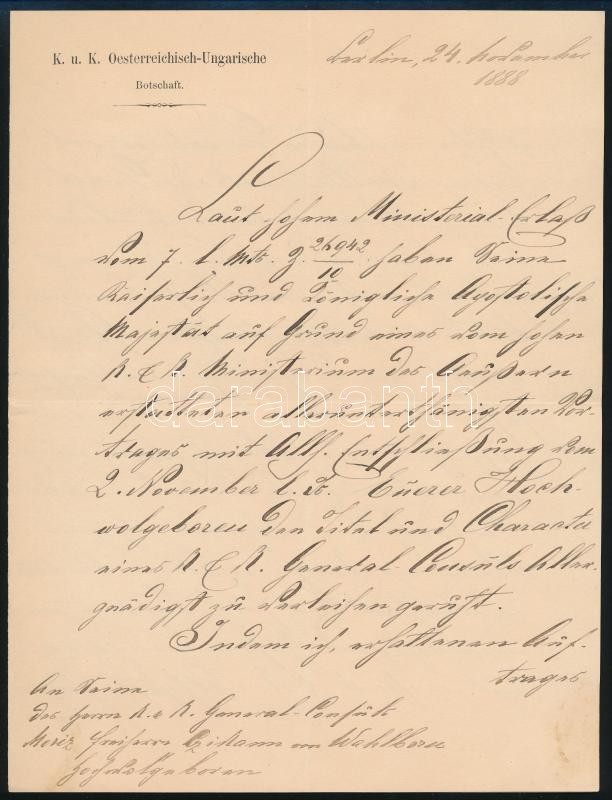 K. u. K. Oesterreichisch-Ungarische
Botschaft.
Berlin, 24. November
1888
Laut hohem Ministerial-Erlaß
vom 7. l. Mts. Z. 26942/10 haben Seine
Kaiserlich und Königliche Apostolische
Majestät auf Grund eines vom hohen
K. & K. Ministerium des Aeußern
erstatteten allerunterthänigsten Vor-
trages mit Allh. Entschließung vom
2. November l. Js. Euerer Hoch-
wolgeboren den Titel und Character
eines K. & K. General-Consuls Aller-
gnädigst zu verleihen geruht.
Indem ich, erhaltenen Auf-
trages
An Seine
des Herrn K. & K. General-Consuls
Moriz Freiherrn von Wahlborn
Hochwolgeboren
darabanth